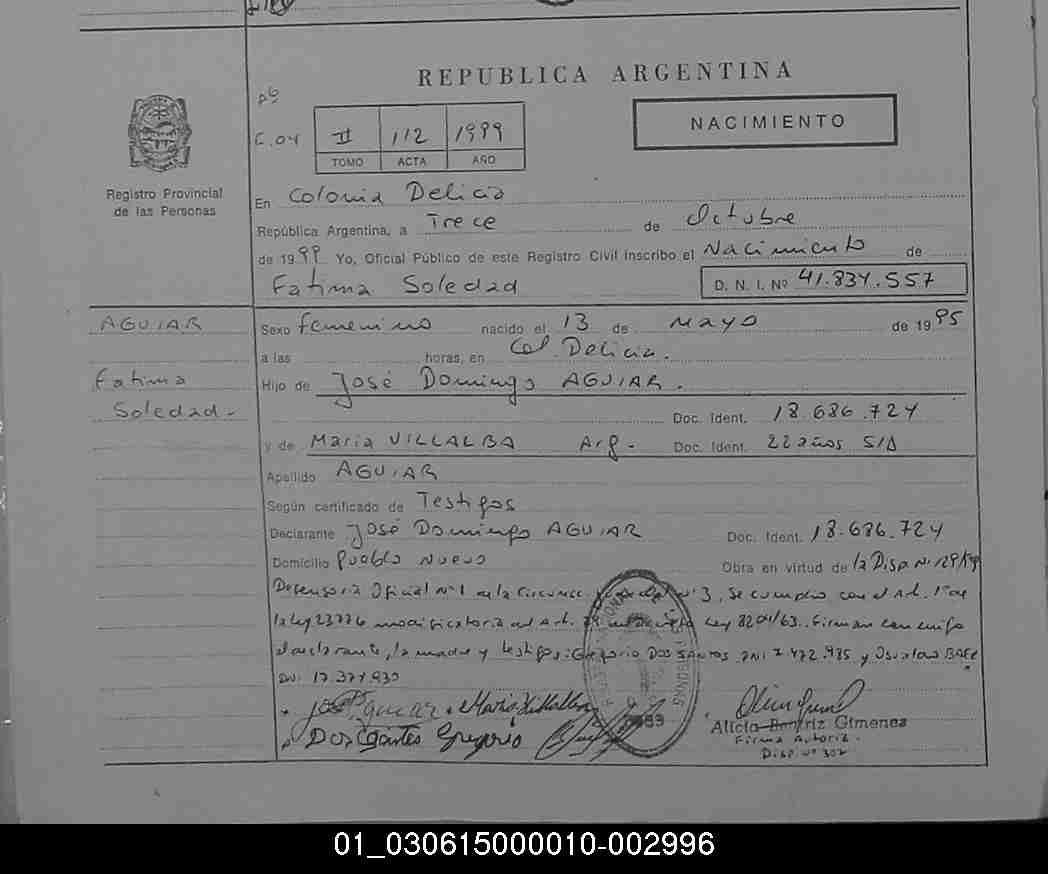 REPUBLICA ARGENTINA
NACIMIENTO
C.04
II 112 1999
TOMO ACTA AÑO
Registro Provincial
de las Personas
En Colonia Delicia
República Argentina, a Trece de Octubre
de 1999 Yo, Oficial Público de este Registro Civil inscribo el Nacimiento de
Fatima Soledad D. N. I. Nº 41.834.557
AGUIAR
Fatima
Soledad-
Sexo femenino nacido el 13 de Mayo de 1995
a las horas, en Col. Delicia.
Hijo de José Domingo AGUIAR.
Doc. Ident. 18.686.724
y de Maria VILLALBA Arg- Doc. Ident. 22 años S/D
Apellido AGUIAR
Según certificado de Testigos
Declarante José Domingo AGUIAR Doc. Ident. 18.686.724
Domicilio Pueblo Nuevo Obra en virtud de la Disp. Nº
Defensoria Oficial nº 1 de la Circunsc. Nº 3, se cumplio con el Art. 1º de
la Ley 23776 modificatoria del Art. Ley 8204/63. Firman conmigo
el declarante, la madre y testigos: Gregorio DOS SANTOS DNI 7.472.985 y Osvaldo
DNI 17.374.930
Maria Villalba
Dos Santos Gregorio
Alicia Beatriz Gimenez
Firma Autoriz.
Disp. Nº 302
01_030615000010-002996